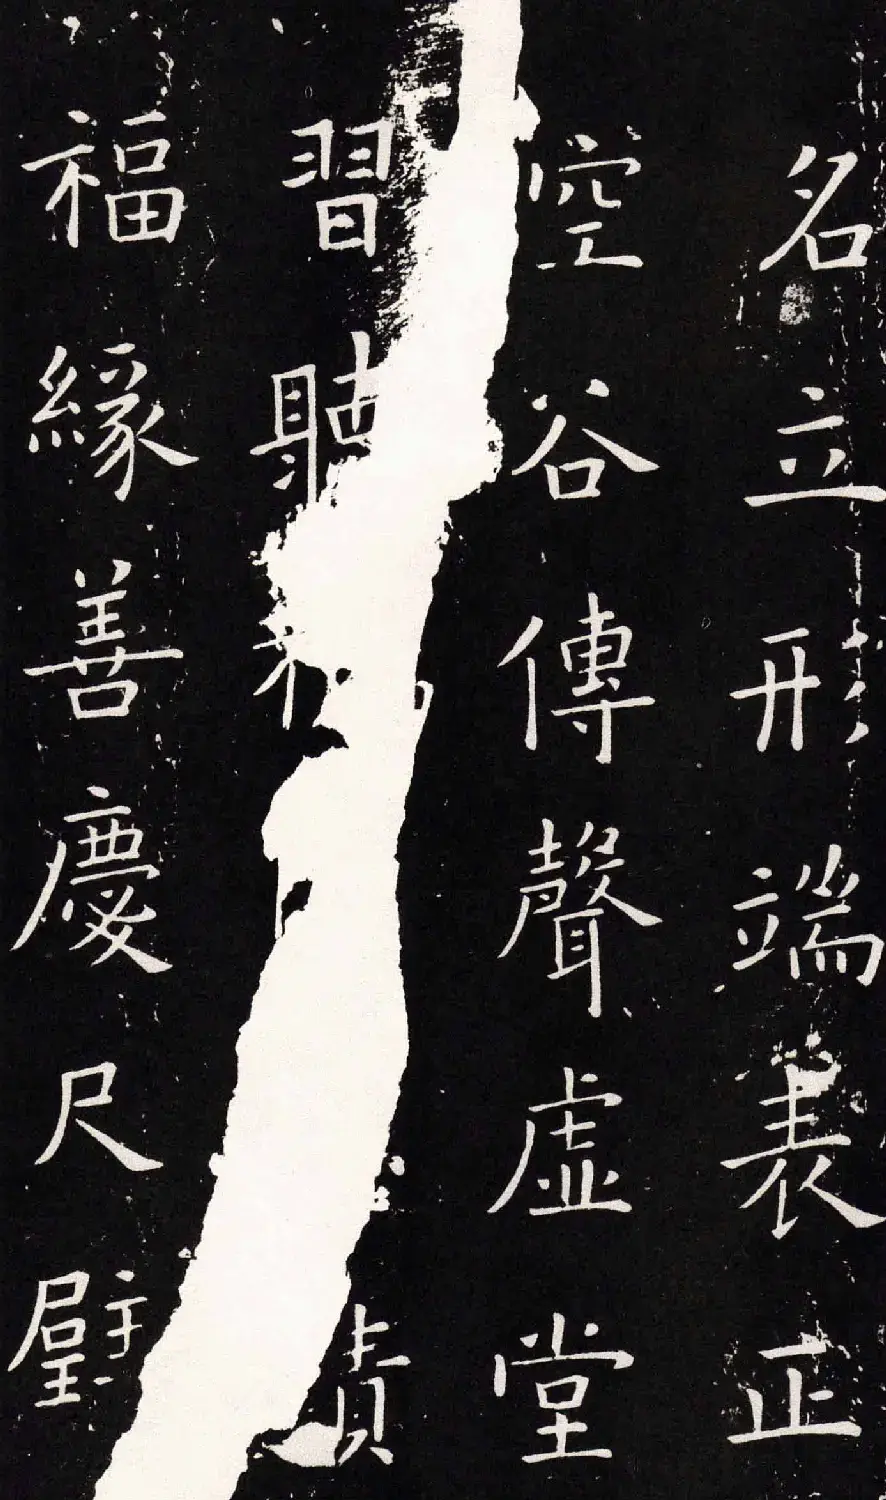 名立形端表正
空谷傳聲虛堂
習聽
福緣善慶尺璧